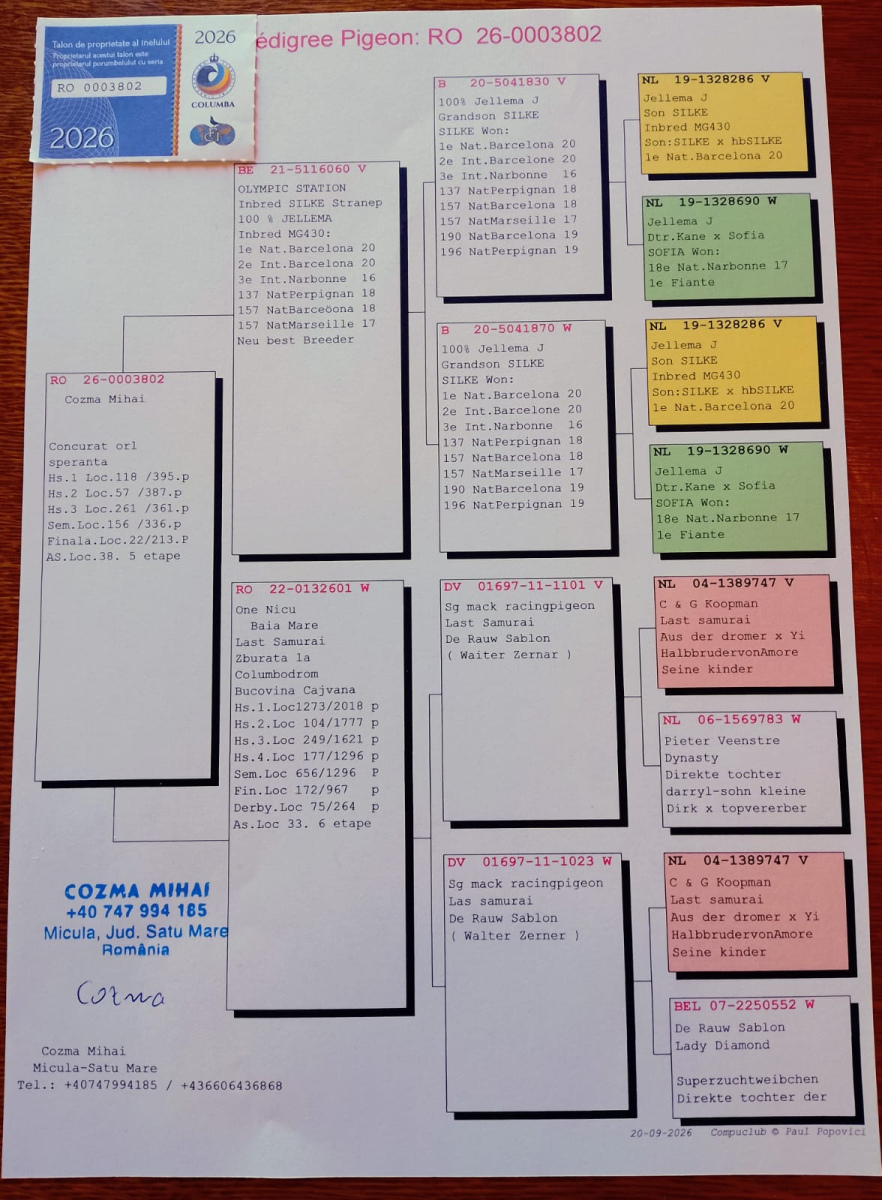 Talon de proprietate al inelului
Proprietarul acestui talon este
proprietarul porumbelului cu seria
RO 0003802
2026
2026
COLUMBA
édigree Pigeon: RO 26-0003802
RO 26-0003802
Cozma Mihai
Concurat orl
speranta
Hs.1 Loc.118 /395.p
Hs.2 Loc.57 /387.p
Hs.3 Loc.261 /361.p
Sem.Loc.156 /336.p
Finala.Loc.22/213.P
AS.Loc.38. 5 etape
BE 21-5116060 V
OLYMPIC STATION
Inbred SILKE Stranep
100 % JELLEMA
Inbred MG430:
1e Nat.Barcelona 20
2e Int.Barcelona 20
3e Int.Narbonne 16
137 NatPerpignan 18
157 NatBarceöona 18
157 NatMarseille 17
Neu best Breeder
RO 22-0132601 W
One Nicu
Baia Mare
Last Samurai
Zburata la
Columbodrom
Bucovina Cajvana
Hs.1.Loc1273/2018 p
Hs.2.Loc 104/1777 p
Hs.3.Loc 249/1621 p
Hs.4.Loc 177/1296 p
Sem.Loc 656/1296 P
Fin.Loc 172/967 p
Derby.Loc 75/264 p
As.Loc 33. 6 etape
B 20-5041830 V
100% Jellema J
Grandson SILKE
SILKE Won:
1e Nat.Barcelona 20
2e Int.Barcelone 20
3e Int.Narbonne 16
137 NatPerpignan 18
157 NatBarcelona 18
157 NatMarseille 17
190 NatBarcelona 19
196 NatPerpignan 19
B 20-5041870 W
100% Jellema J
Grandson SILKE
SILKE Won:
1e Nat.Barcelona 20
2e Int.Barcelone 20
3e Int.Narbonne 16
137 NatPerpignan 18
157 NatBarcelona 18
157 NatMarseille 17
190 NatBarcelona 19
196 NatPerpignan 19
DV 01697-11-1101 V
Sg mack racingpigeon
Last Samurai
De Rauw Sablon
( Waiter Zernar )
DV 01697-11-1023 W
Sg mack racingpigeon
Las samurai
De Rauw Sablon
( Walter Zerner )
NL 19-1328286 V
Jellema J
Son SILKE
Inbred MG430
Son:SILKE x hbSILKE
1e Nat.Barcelona 20
NL 19-1328690 W
Jellema J
Dtr.Kane x Sofia
SOFIA Won:
18e Nat.Narbonne 17
1e Fiante
NL 19-1328286 V
Jellema J
Son SILKE
Inbred MG430
Son:SILKE x hbSILKE
1e Nat.Barcelona 20
NL 19-1328690 W
Jellema J
Dtr.Kane x Sofia
SOFIA Won:
18e Nat.Narbonne 17
1e Fiante
NL 04-1389747 V
C & G Koopman
Last samurai
Aus der dromer x Yi
HalbbrudervonAmore
Seine kinder
NL 06-1569783 W
Pieter Veenstre
Dynasty
Direkte tochter
darryl-sohn kleine
Dirk x topvererber
NL 04-1389747 V
C & G Koopman
Last samurai
Aus der dromer x Yi
HalbbrudervonAmore
Seine kinder
BEL 07-2250552 W
De Rauw Sablon
Lady Diamond
Superzuchtweibchen
Direkte tochter der
COZMA MIHAI
+40 747 994 185
Micula, Jud. Satu Mare
România
Cozma
Cozma Mihai
Micula-Satu Mare
Tel.: +40747994185 / +436606436868
20-09-2026 Compuclub © Paul Popovici